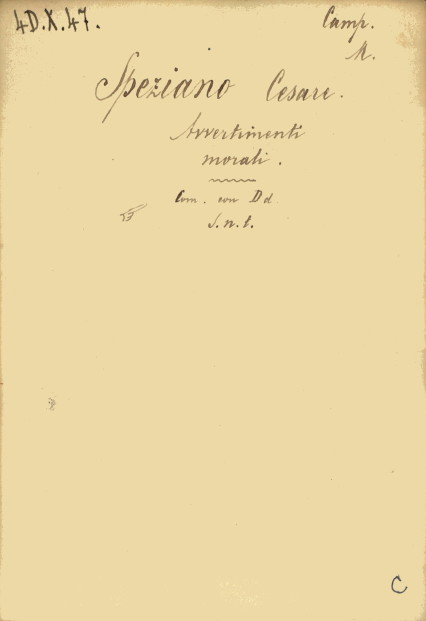 4D.X.47.
Camp.
M.
Speziano Cesare.
Avvertimenti
morali.
Com. con Dd
S.n.t.
C